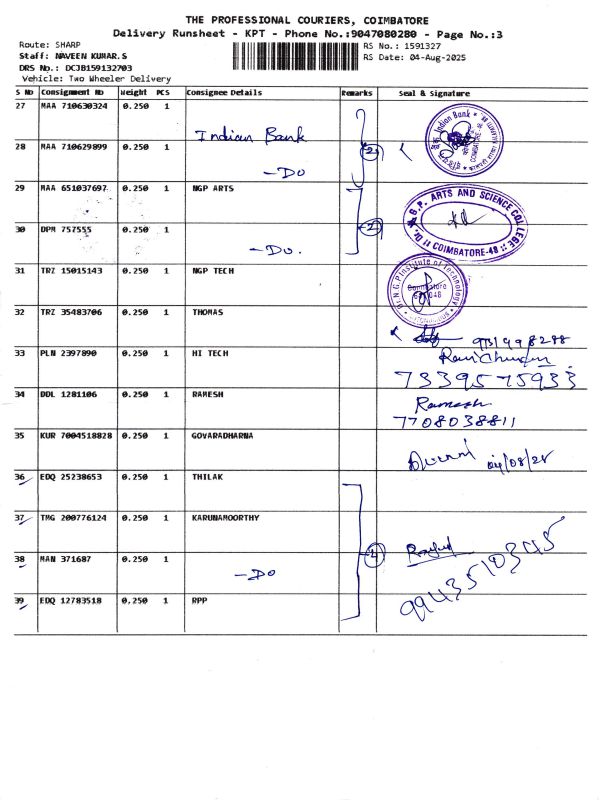 THE PROFESSIONAL COURIERS, COIMBATORE
Delivery Runsheet - KPT - Phone No.:9047080280 - Page No.:3
Route: SHARP
Staff: NAVEEN KUMAR.S
DRS No.: DCJB159132703
Vehicle: Two Wheeler Delivery
RS No.: 1591327
RS Date: 04-Aug-2025
S No Consignment No Weight PCS Consignee Details Remarks Seal & Signature
27 MAA 710630324 0.250 1
Indian Bank
28 MAA 710629899 0.250 1 2
-Do
Indian Bank
COIMBATORE
29 MAA 651037697 0.250 1 NGP ARTS
30 DPM 757555 0.250 1 2
-Do.
N.G.P. ARTS AND SCIENCE COLLEGE
COIMBATORE-48
31 TRZ 15015143 0.250 1 NGP TECH
Dr.N.G.P.Institute of Technology
Coimbatore
641 048
32 TRZ 35483706 0.250 1 THOMAS
33 PLN 2397890 0.250 1 HI TECH
7339575933
34 DDL 1281106 0.250 1 RAMESH
Ramesh
7708038811
35 KUR 7004518828 0.250 1 GOVARADHARNA
36 EDQ 25238653 0.250 1 THILAK
37 TMG 200776124 0.250 1 KARUNAMOORTHY
4
9943510345
38 MAN 371687 0.250 1
-Do
39 EDQ 12783518 0.250 1 RPP